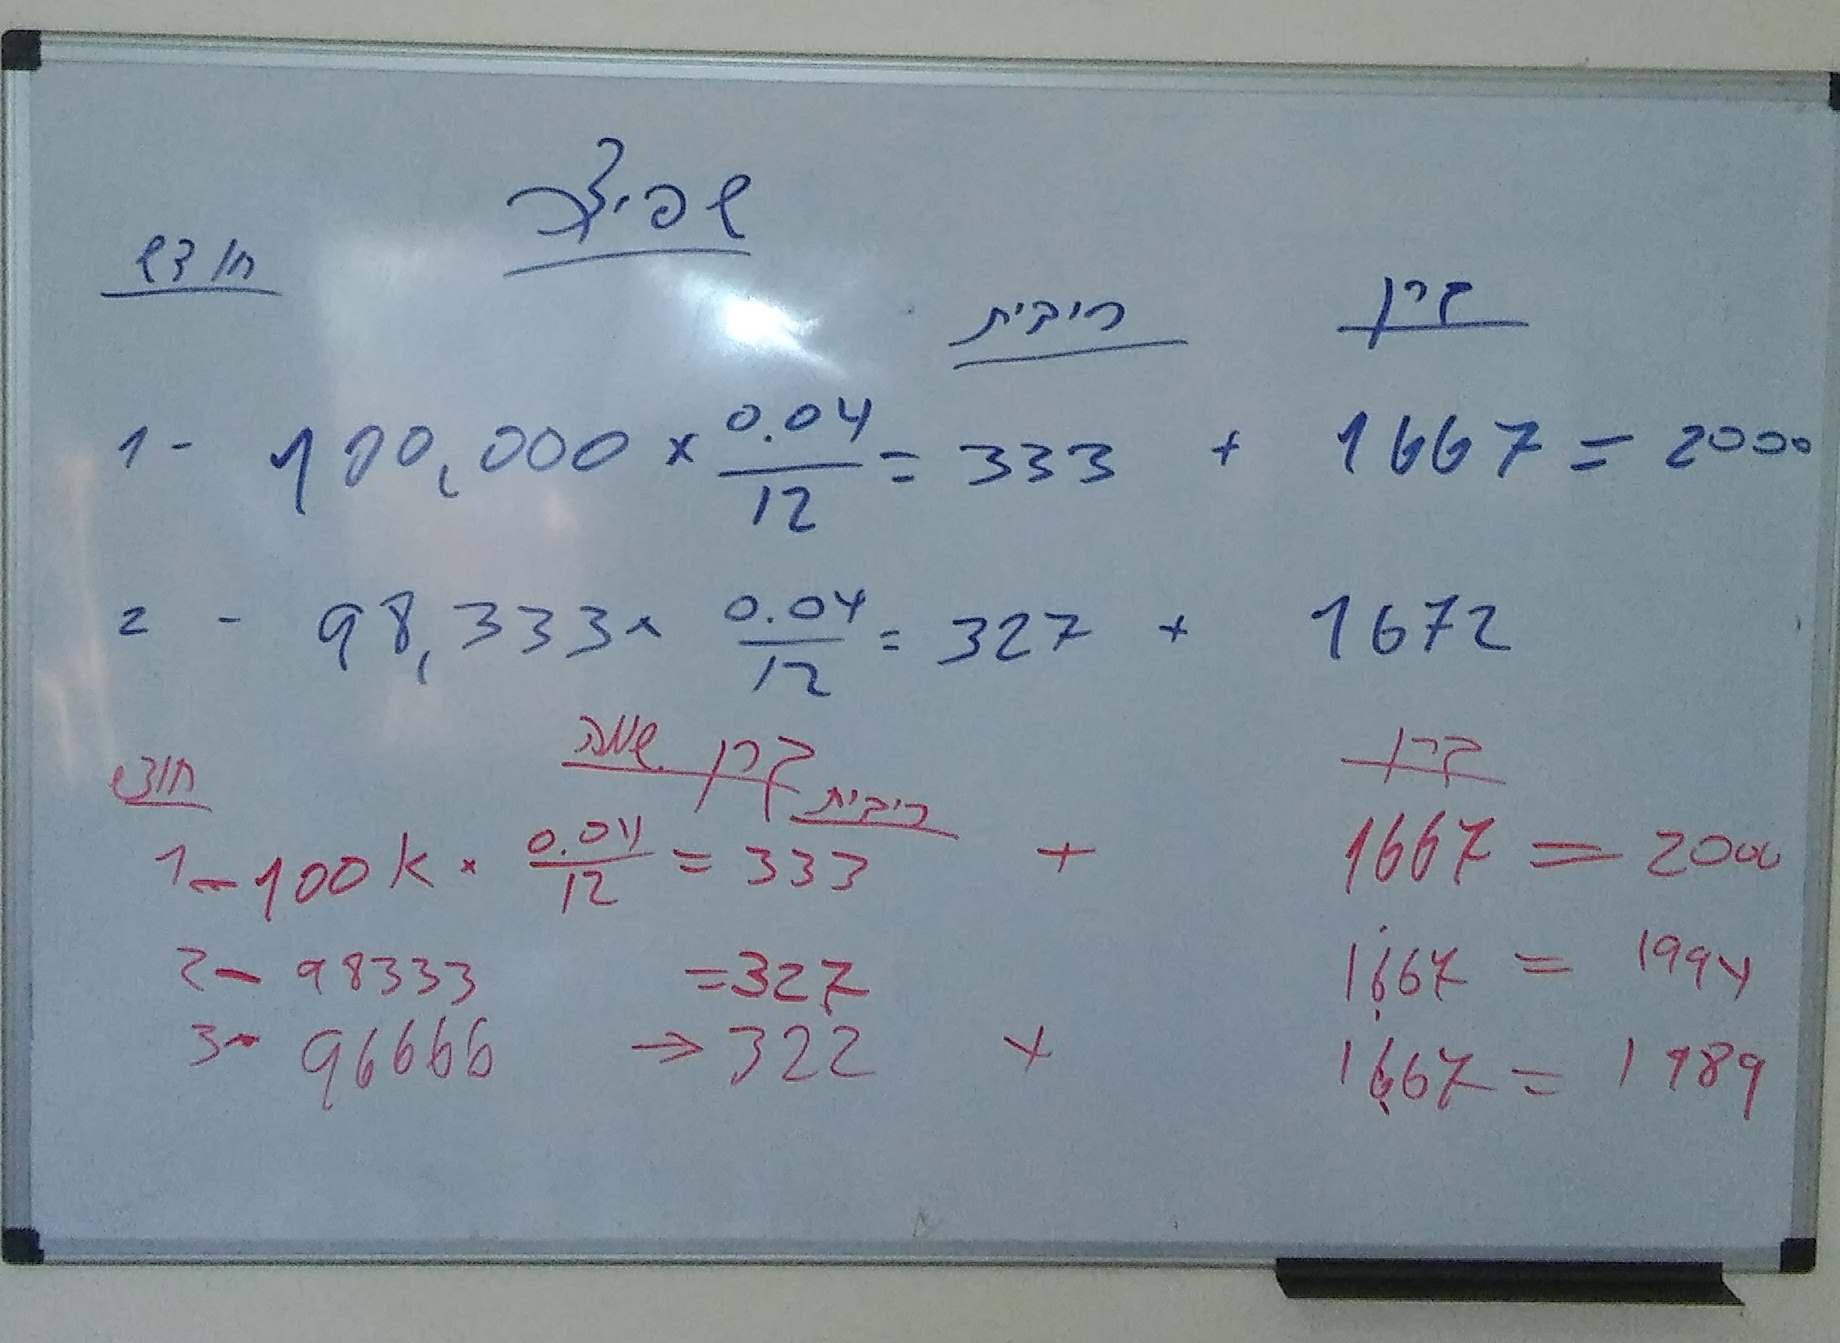 שפיצר
חודש
ריבית קרן
1- 100,000 × 0.04/12 = 333 + 1667 = 2000
2 - 98,333 × 0.04/12 = 327 + 1672
קרן שווה
חודש ריבית קרן
1- 100k × 0.04/12 = 333 + 1667 = 2000
2- 98333 = 327 1667 = 1994
3- 96666 → 322 + 1667 = 1989